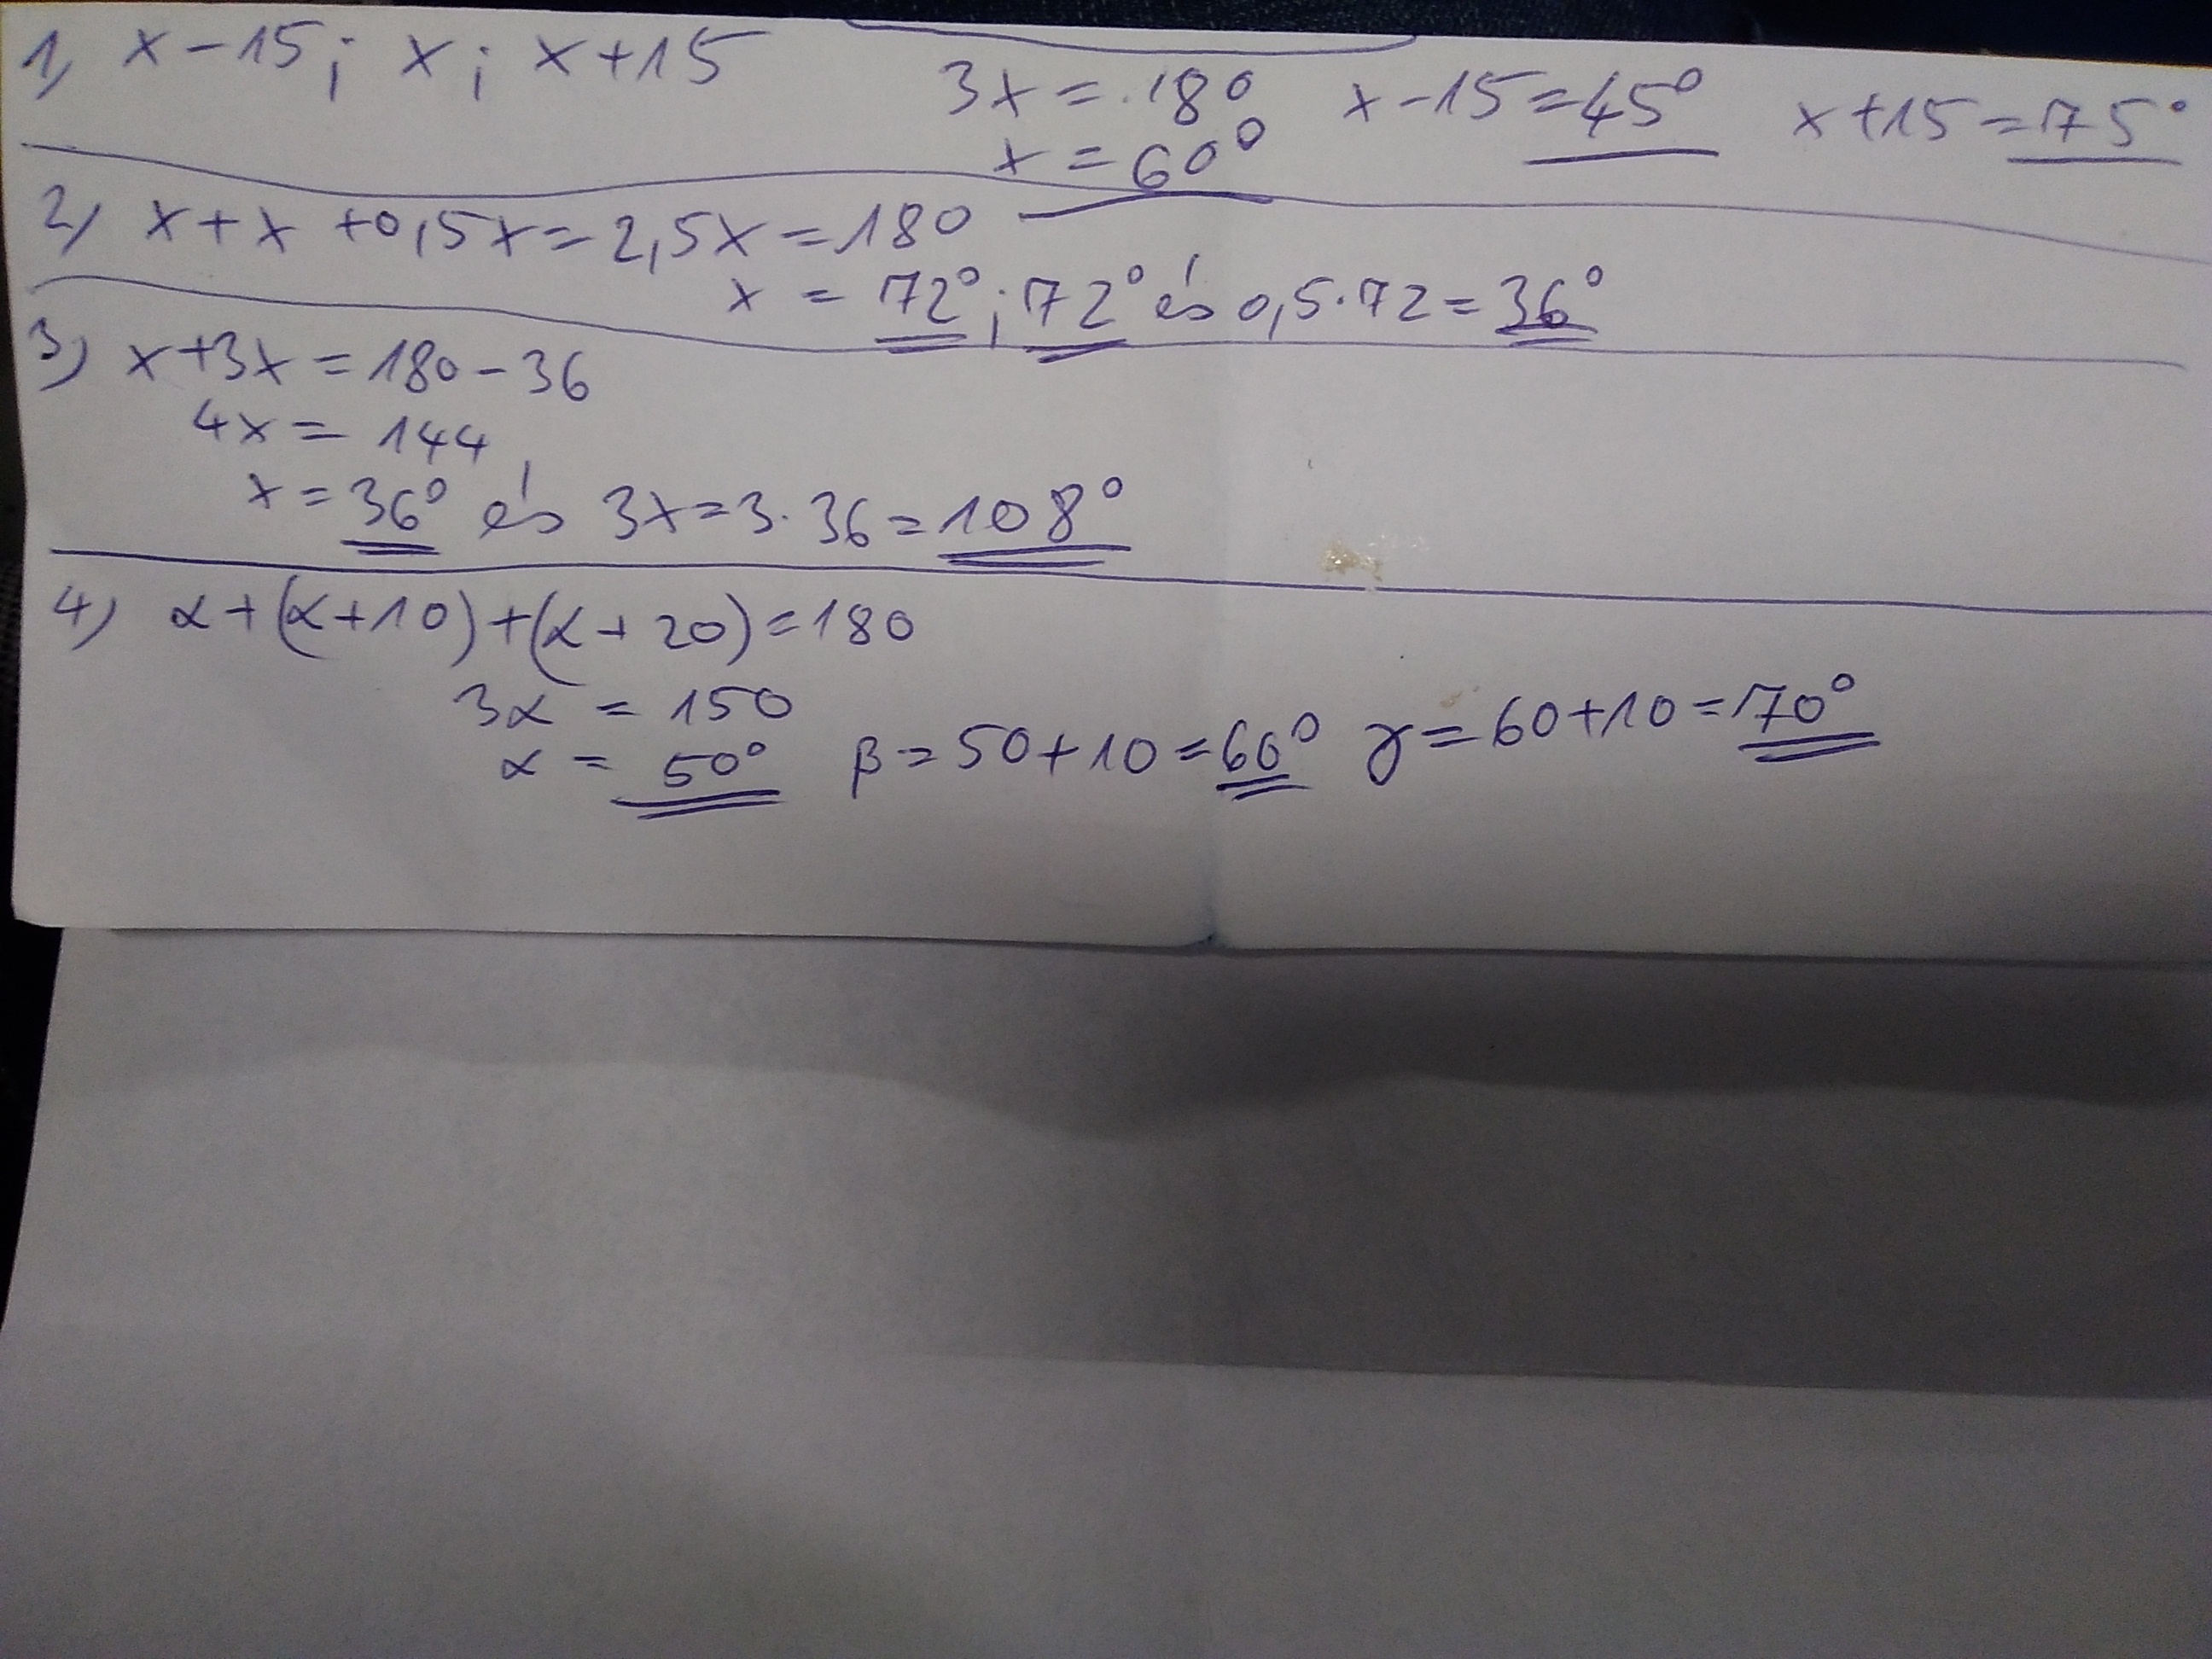 1, x-15; x; x+15 3x=180 x-15=45° x+15=75°
x=60°
2, x+x+0,5x=2,5x=180
x=72°; 72° és 0,5·72=36°
3) x+3x=180-36
4x=144
x=36° és 3x=3·36=108°
4) α+(α+10)+(α+20)=180
3α=150
α=50° β=50+10=60° γ=60+10=70°